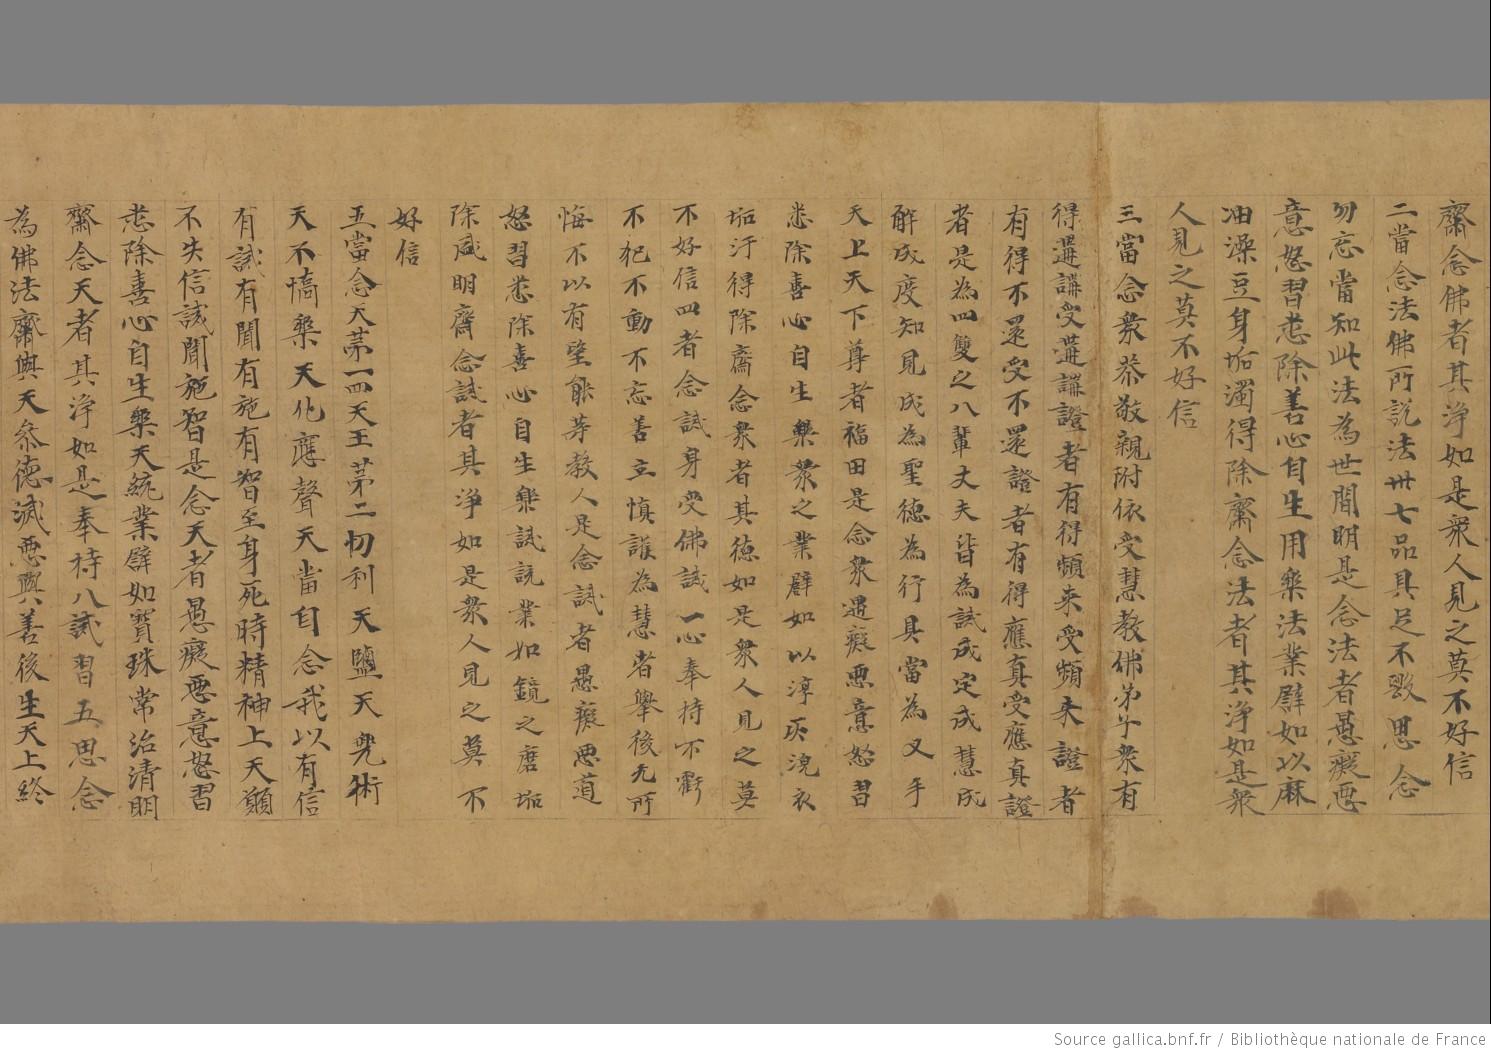 齋念佛者其淨如是衆人見之莫不好信
二當念法佛所說法卅七品具足不毀思念
勿忘當知此法為世間明是念法者愚癡惡
意怒習悉除善心自生用樂法業譬如以麻
油澡豆身垢濁得除齋念法者其淨如是衆
人見之莫不好信
三當念衆恭敬親附依受慧教佛弟子衆有
得溝講受溝講證者有得頻来受頻来證者
有得不還受不還證者有得應真受應真證
者是為四雙之八輩丈夫皆為誡成定成慧成
解成度知見成為聖德為行具當為叉手
天上天下尊者福田是念衆遇癡惡意怒習
悉除善心自生樂衆之業譬如以淳灰浣衣
垢汙得除齋念衆者其德如是衆人見之莫
不好信四者念誡身受佛誡一心奉持不虧
不犯不動不忘善立慎護為慧者舉後无所
悔不以有望能等教人是念誡者愚癡惡道
怒習悉除喜心自生樂誡說業如鏡之磨垢
除盛明齋念誡者其淨如是衆人見之莫不
好信
五當念天苐一四天王苐二忉利天鹽天兜術
天不憍樂天化應聲天當自念我以有信
有誡有聞有施有智至身死時精神上天願
不失信誡聞施智是念天者愚癡惡意怒習
悉除善心自生樂天統業譬如寶珠常治清明
齋念天者其淨如是奉持八誡習五思念
為佛法齋與天參德滅惡興善後生天上終